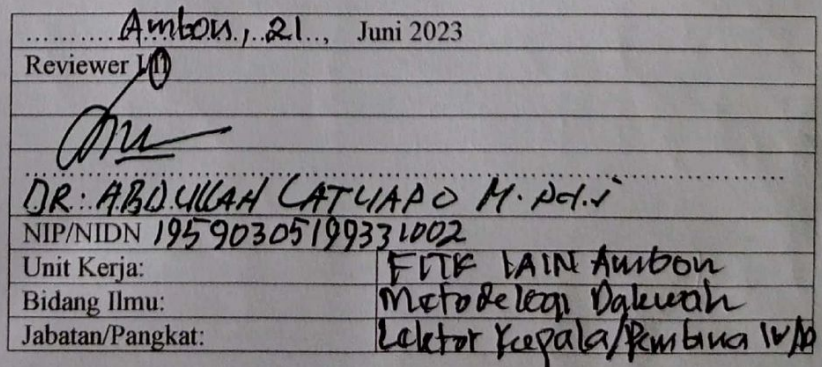 Ambon, 21, Juni 2023
Reviewer I/II
DR. ABDULLAH LATUAPO M.Pd.I
NIP/NIDN
Unit Kerja: FITK IAIN Ambon
Bidang Ilmu: Metodelogi Dakwah
Jabatan/Pangkat: Lektor Kepala/Pembina IV/